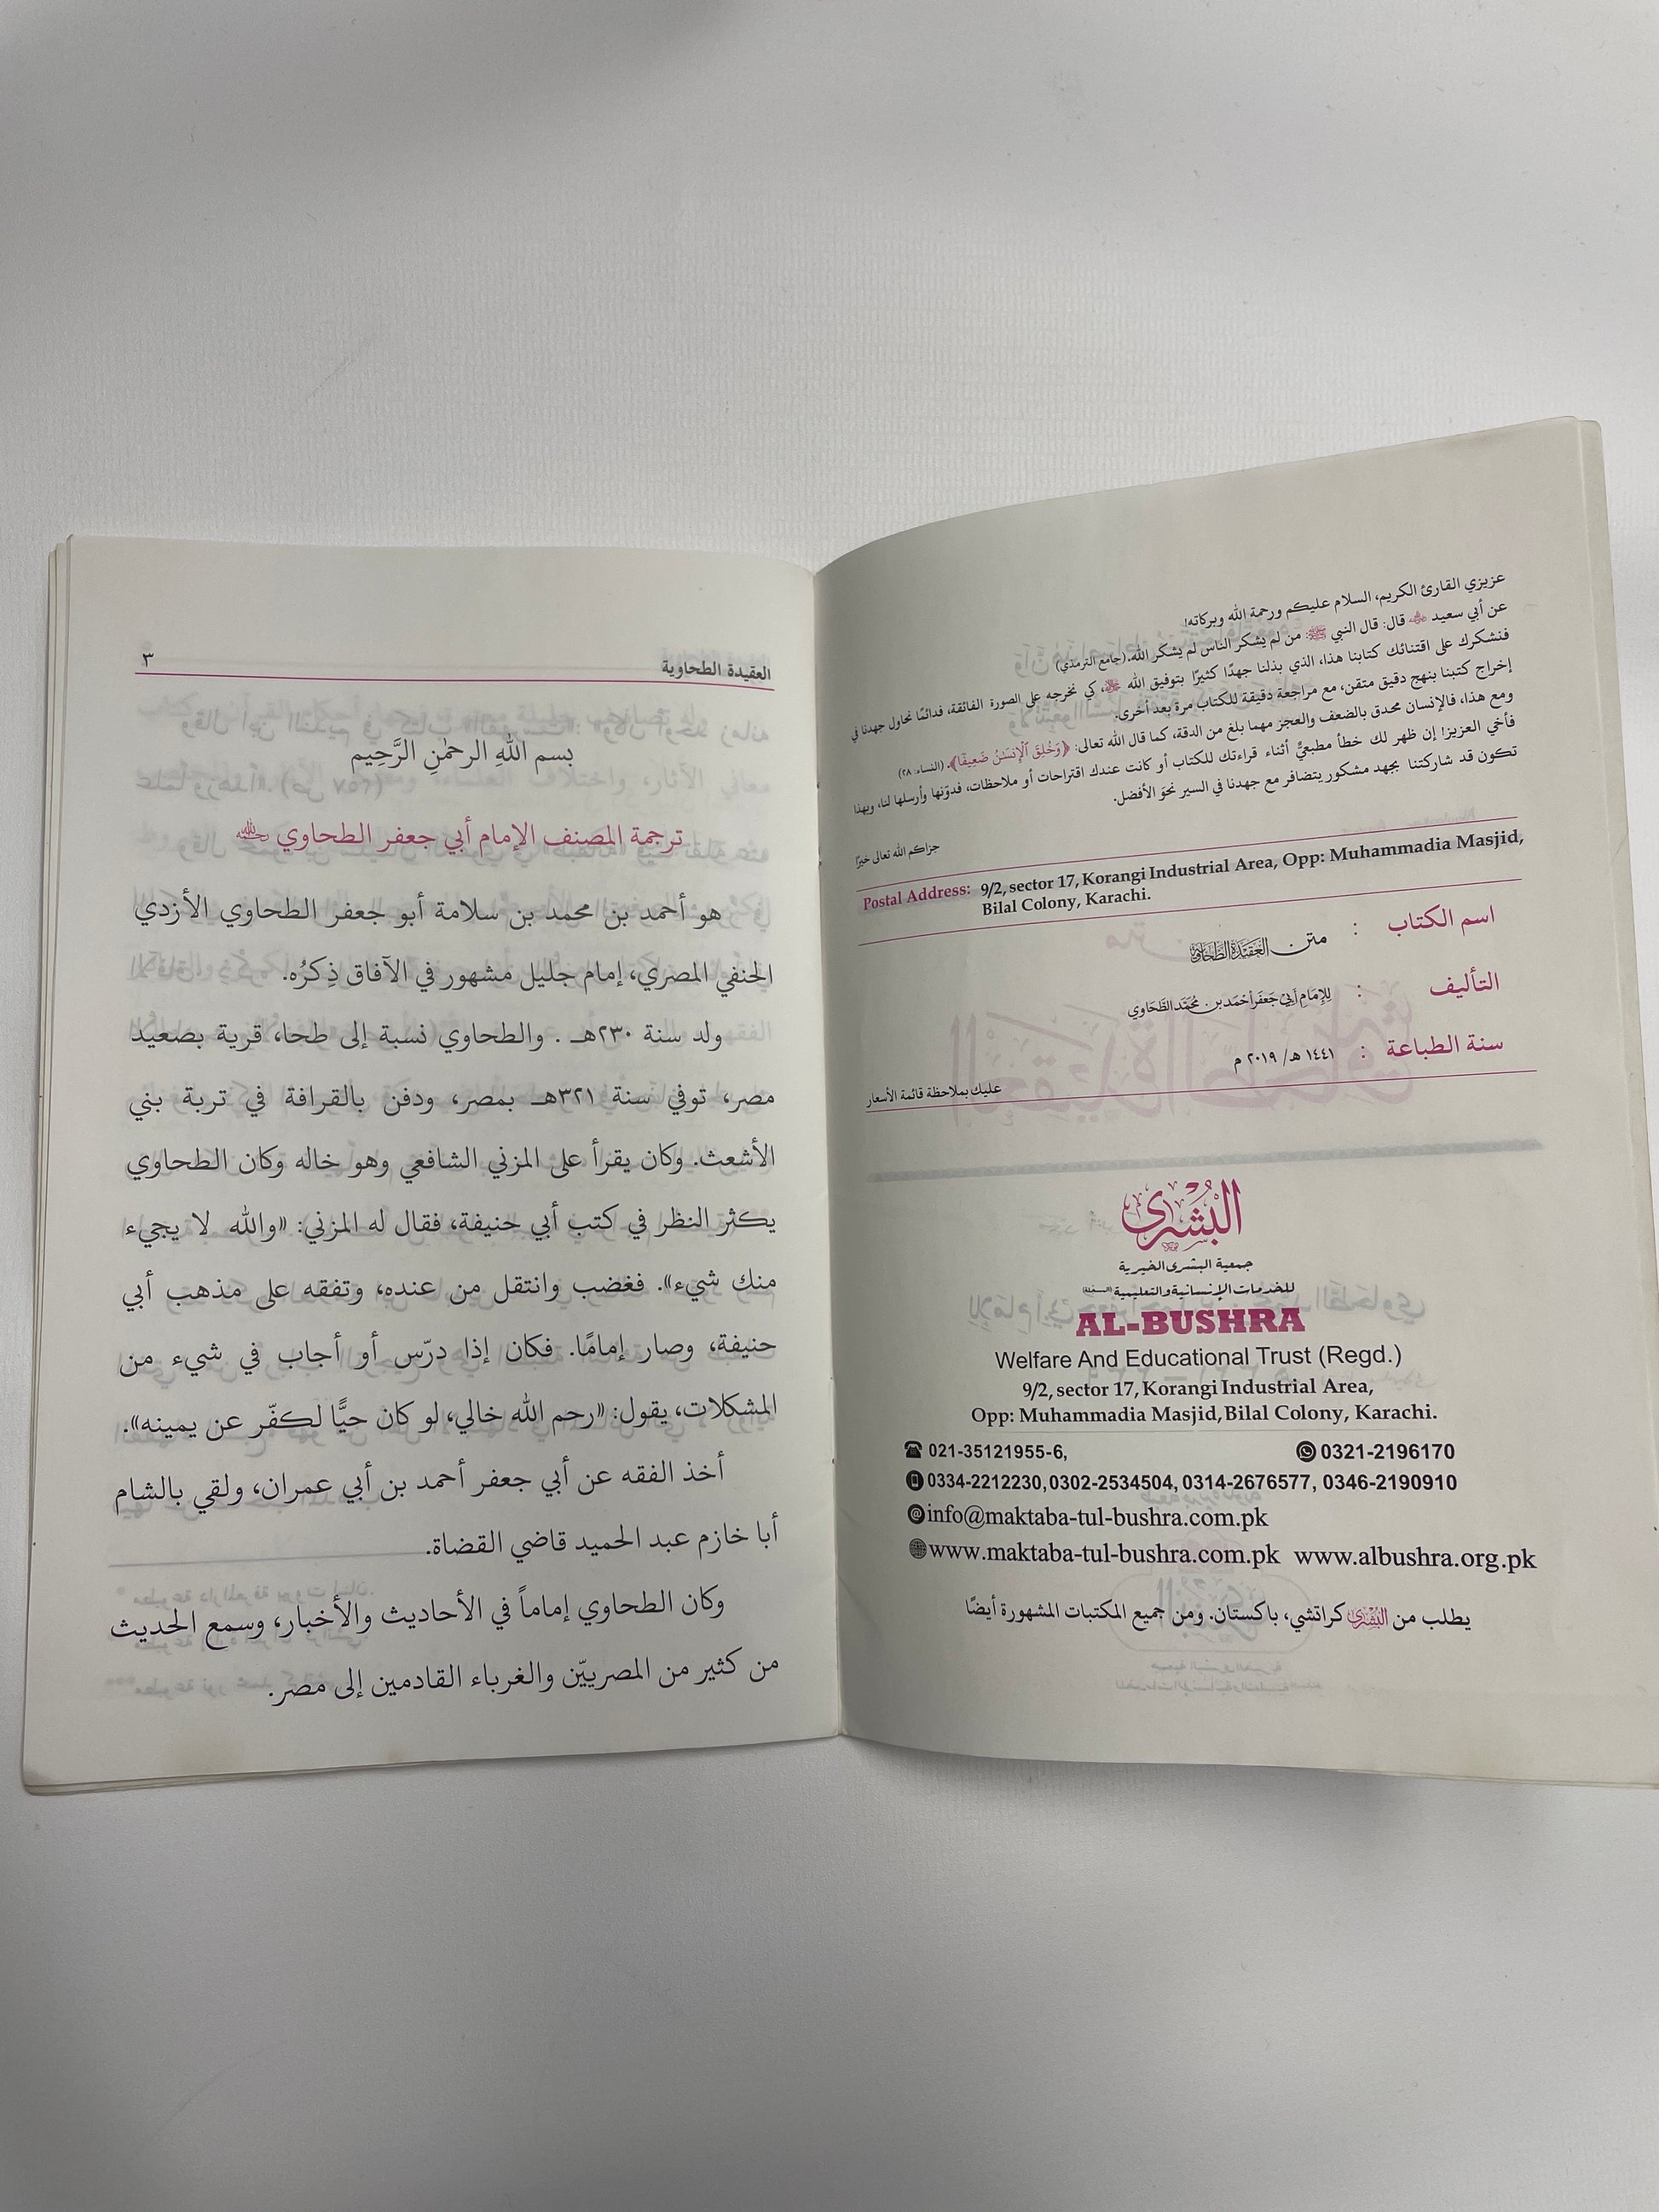 عزيزي القارئ الكريم، السلام عليكم ورحمة الله وبركاته!
عن أبي سعيد ﷺ قال: قال النبي ﷺ: من لم يشكر الناس لم يشكر الله. (جامع الترمذي)
فنشكرك على اقتنائك كتابنا هذا، الذي بذلنا جهدًا كثيرًا بتوفيق الله، كي نخرجه على الصورة الفائقة، فدائمًا نحاول جهدنا في
إخراج كتبنا بنهج دقيق متقن، مع مراجعة دقيقة للكتاب مرة بعد أخرى.
ومع هذا، فالإنسان محدق بالضعف والعجز مهما بلغ من الدقة، كما قال الله تعالى: ﴿وَخُلِقَ ٱلْإِنسَٰنُ ضَعِيفًا﴾. (النساء: ٢٨)
فأخي العزيز! إن ظهر لك خطأ مطبعيٌّ أثناء قراءتك للكتاب أو كانت عندك اقتراحات أو ملاحظات، فدوّنها وأرسلها لنا، وبهذا
تكون قد شاركتنا بجهد مشكور يتضافر مع جهدنا في السير نحوَ الأفضل.
جزاكم الله تعالى خيرًا
Postal Address: 9/2, sector 17, Korangi Industrial Area, Opp: Muhammadia Masjid,
Bilal Colony, Karachi.
اسم الكتاب : متن العَقِيْدَة الطَّحَاوِيَّة
التأليف : لِلإِمَامِ أَبِيْ جَعْفَر أَحْمَد بن مُحَمَّد الطَّحَاوِي
سنة الطباعة : ١٤٤١ هـ/ ٢٠١٩ م
عليك بملاحظة قائمة الأسعار
البُشْرى
جمعية البشرى الخيرية
للخدمات الإنسانية والتعليمية
AL-BUSHRA
Welfare And Educational Trust (Regd.)
9/2, sector 17, Korangi Industrial Area,
Opp: Muhammadia Masjid, Bilal Colony, Karachi.
021-35121955-6, 0321-2196170
0334-2212230, 0302-2534504, 0314-2676577, 0346-2190910
info@maktaba-tul-bushra.com.pk
www.maktaba-tul-bushra.com.pk www.albushra.org.pk
يطلب من البُشْرى كراتشي، باكستان. ومن جميع المكتبات المشهورة أيضًا
العقيدة الطحاوية ٣
بسم اللهِ الرحمٰنِ الرَّحِيم
ترجمة المصنف الإمام أبي جعفر الطحاوي رحمه الله
هو أحمد بن محمد بن سلامة أبو جعفر الطحاوي الأزدي
الحنفي المصري، إمام جليل مشهور في الآفاق ذِكرُه.
ولد سنة ٢٣٠هـ . والطحاوي نسبة إلى طحا، قرية بصعيد
مصر، توفي سنة ٣٢١هـ بمصر، ودفن بالقرافة في تربة بني
الأشعث. وكان يقرأ على المزني الشافعي وهو خاله وكان الطحاوي
يكثر النظر في كتب أبي حنيفة، فقال له المزني: «والله لا يجيء
منك شيء». فغضب وانتقل من عنده، وتفقه على مذهب أبي
حنيفة، وصار إمامًا. فكان إذا درّس أو أجاب في شيء من
المشكلات، يقول: «رحم الله خالي، لو كان حيًّا لكفّر عن يمينه».
أخذ الفقه عن أبي جعفر أحمد بن أبي عمران، ولقي بالشام
أبا خازم عبد الحميد قاضي القضاة.
وكان الطحاوي إماماً في الأحاديث والأخبار، وسمع الحديث
من كثير من المصريّين والغرباء القادمين إلى مصر.